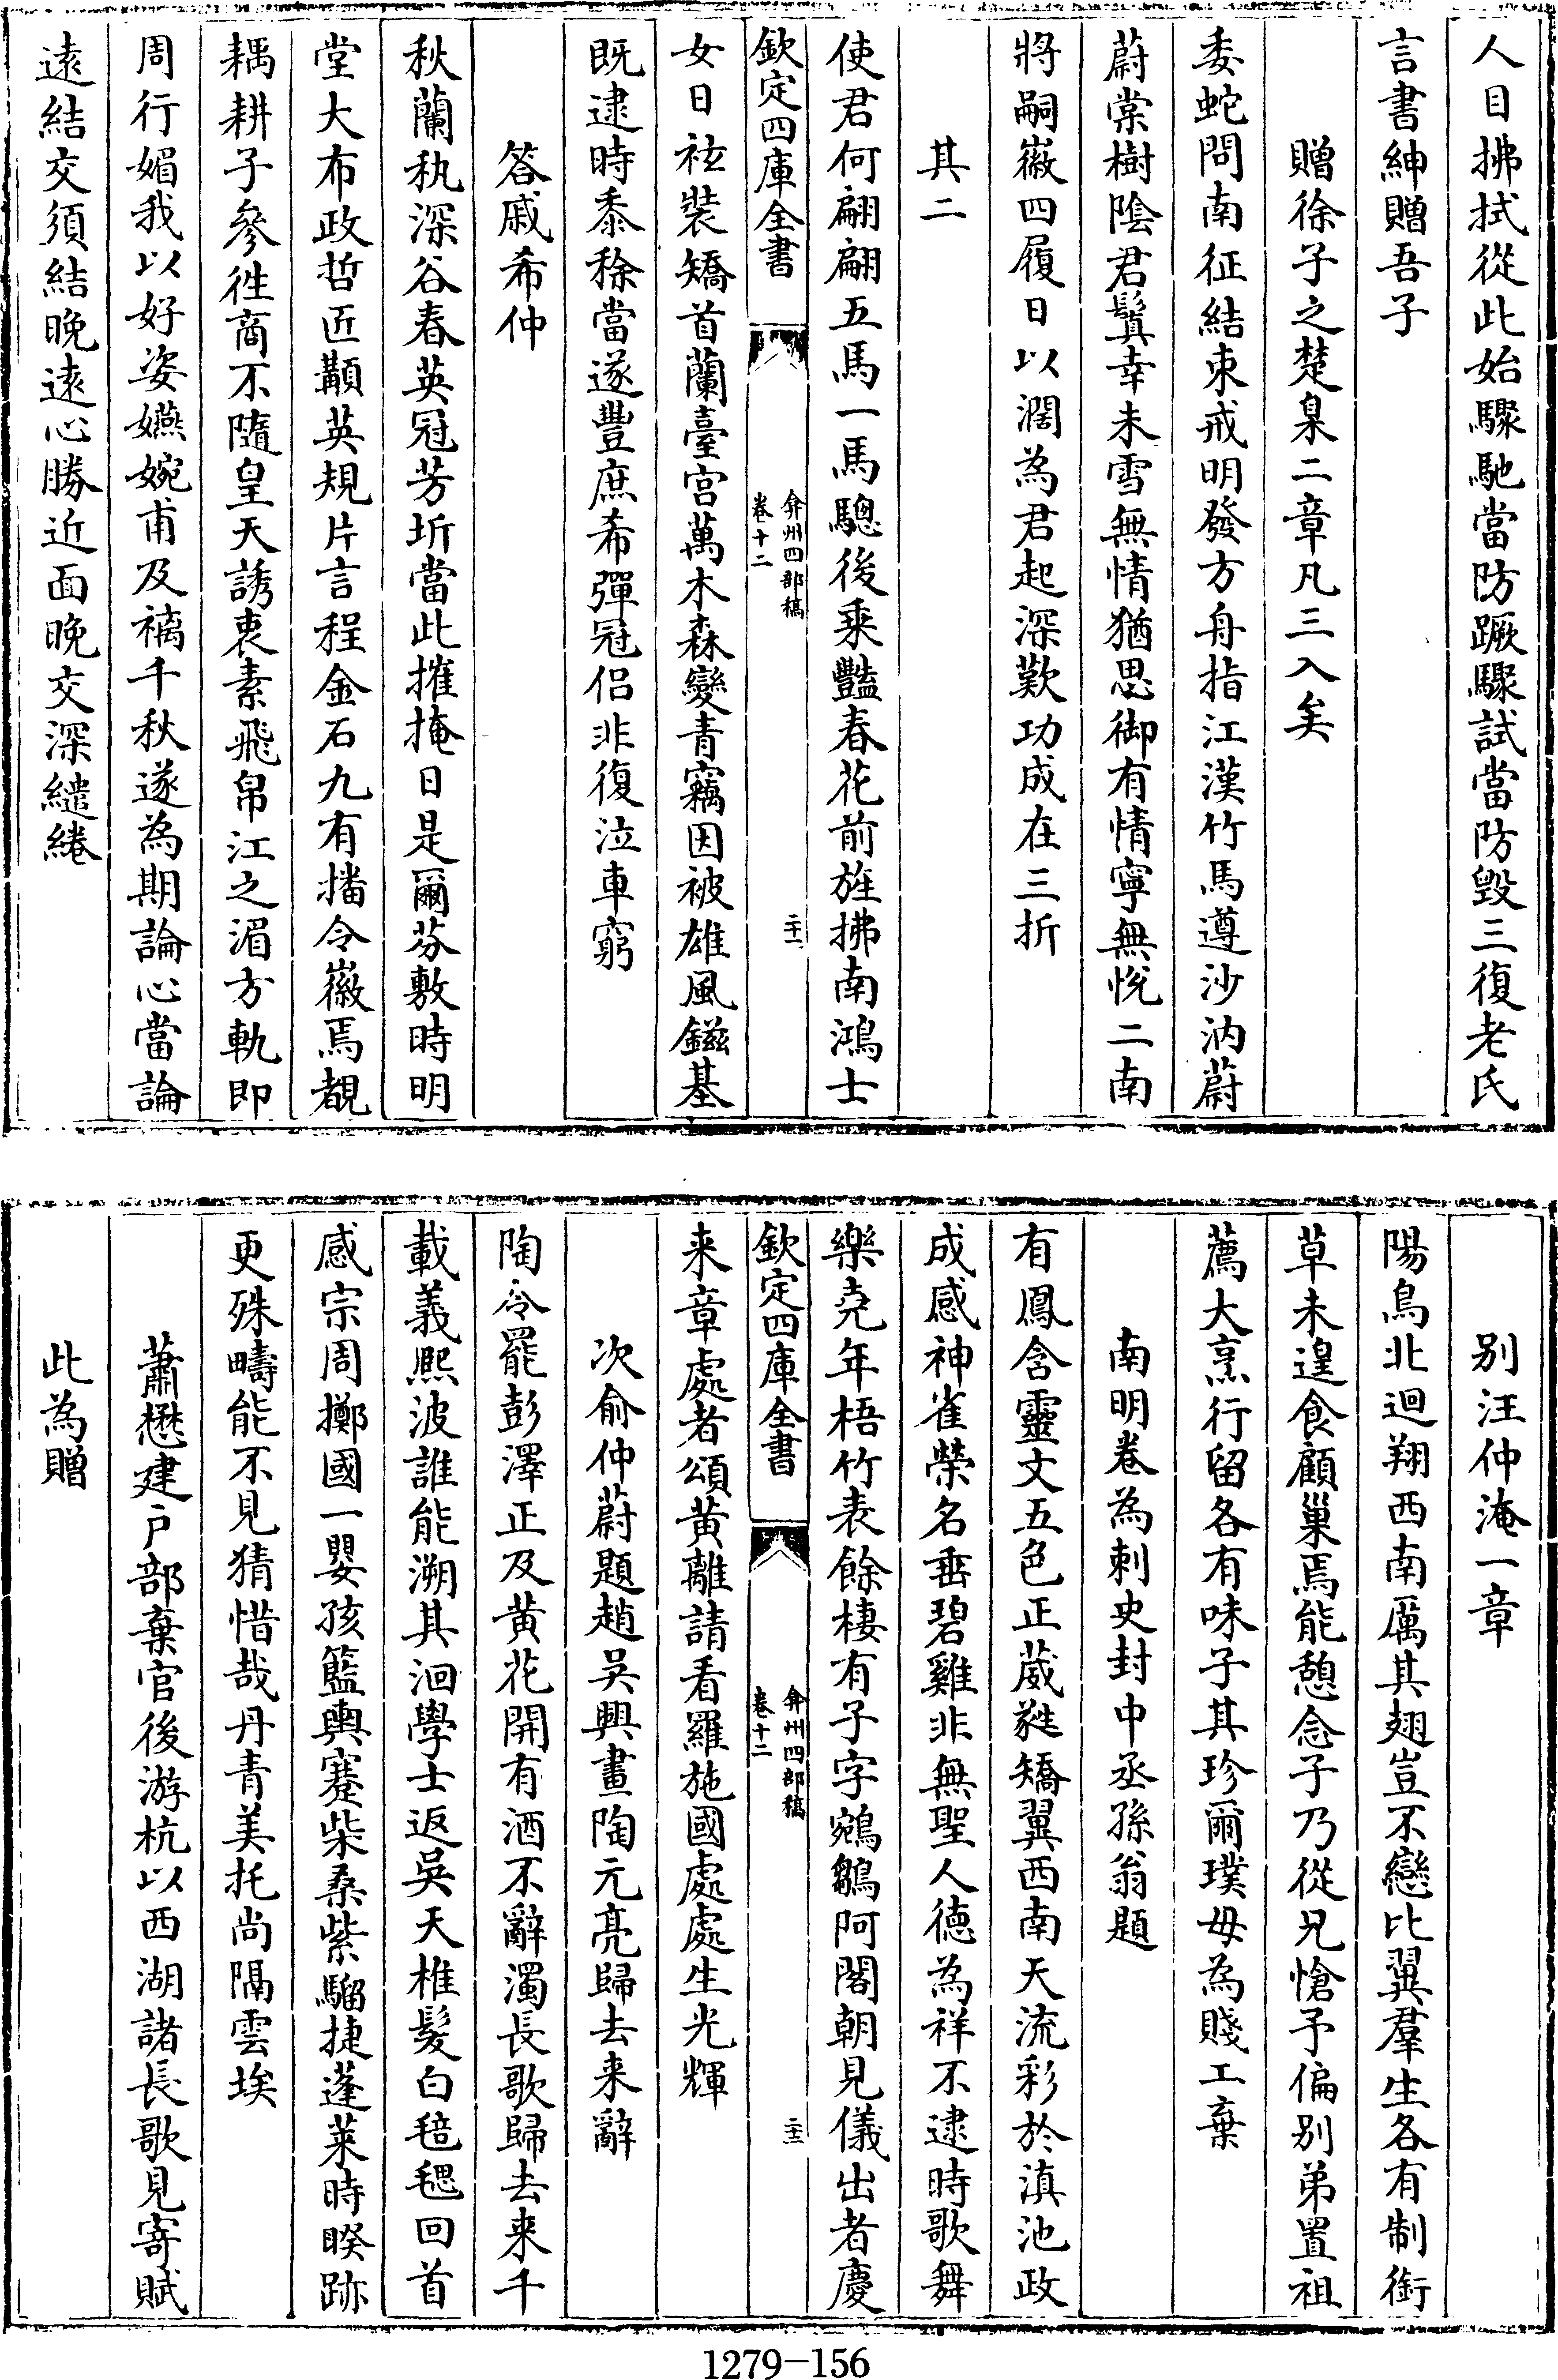 人目拂拭從此始驟馳當防蹶驟試當防毁三復老氏
言書紳贈吾子
贈徐子之楚臬二章凡三入矣
委蛇問南征結束戒明發方舟指江漢竹馬遵沙汭蔚
蔚棠樹陰君鬒幸未雪無情猶思御有情寧無悅二南
將嗣徽四履日以濶為君起深歎功成在三折
其二
使君何翩翩五馬一馬驄後乘豔春花前旌拂南鴻士
女日袨裝矯首蘭臺宫萬木森變青竊因被雄風鎡基
既逮時黍稌當遂豐庶希彈冠侣非復泣車窮
答戚希仲
秋蘭秇深谷春英冠芳圻當此摧掩日是爾芬敷時明
堂大布政哲匠顜英規片言程金石九有播令徽焉覩
耦耕子參徃商不隨皇天誘衷素飛帛江之湄方軌即
周行媚我以好姿嬿婉甫及褵千秋遂為期論心當論
逺結交須結晩逺心勝近面晩交深繾綣
欽定四庫全書
弇州四部稿
卷十二
二十一
别汪仲淹一章
陽鳥北迴翔西南厲其翅豈不戀比翼羣生各有制銜
草未遑食顧巢焉能憩念子乃從兄愴予偏别弟置祖
薦大烹行留各有味子其珍爾璞毋為賤工棄
南明卷為刺史封中丞孫翁題
有鳳含靈文五色正葳蕤矯翼西南天流彩於滇池政
成感神雀榮名垂碧雞非無聖人德為祥不逮時歌舞
樂堯年梧竹表餘棲有子字鵷鶵阿閣朝見儀出者慶
来章處者頌黄離請看羅施國處處生光輝
次俞仲蔚題趙吳興畫陶元亮歸去来辭
陶令罷彭澤正及黄花開有酒不辭濁長歌歸去来千
載義熙波誰能溯其洄學士返吳天椎髮白毰毸回首
感宗周擲國一嬰孩籃輿蹇柴桑紫騮捷蓬萊時睽跡
更殊疇能不見猜惜哉丹青美托尚隔雲埃
蕭懋建户部棄官後游杭以西湖諸長歌見寄賦
此為贈
欽定四庫全書
弇州四部稿
卷十二
二十二
1279-156